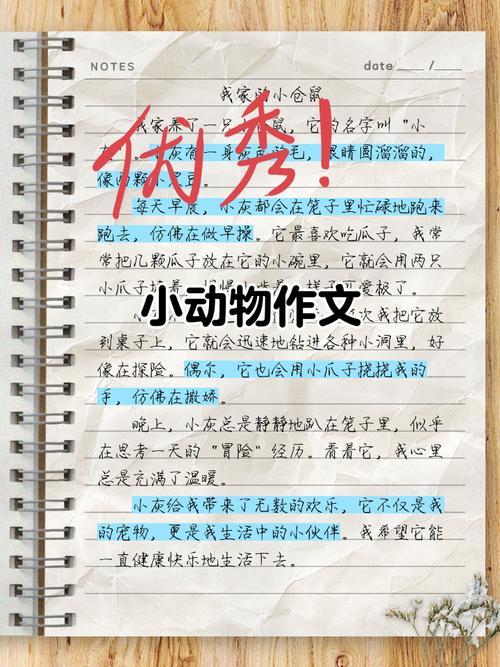 NOTES
date ____ / ____
我家的小仓鼠
我家养了一只小仓鼠，它的名字叫“小
灰”。小灰有一身灰色的毛，眼睛圆溜溜的，
像两颗小黑豆。
优秀！
每天早晨，小灰都会在笼子里忙碌地跑来
跑去，仿佛在做早操。它最喜欢吃瓜子，我常
常把几颗瓜子放在它的小碗里，它就会用两只
小爪子捧着，慢慢 着，样子可爱极了。
小动物作文
小 次我把它放
到桌子上，它就会迅速地钻进各种小洞里，好
像在探险。偶尔，它也会用小爪子挠挠我的
手，仿佛在撒娇。
晚上，小灰总是静静地趴在笼子里，似乎
在思考一天的“冒险”经历。看着它，我心里
总是充满了温暖。
小灰给我带来了无数的欢乐，它不仅是我
的宠物，更是我生活中的小伙伴。我希望它能
一直健康快乐地生活下去。